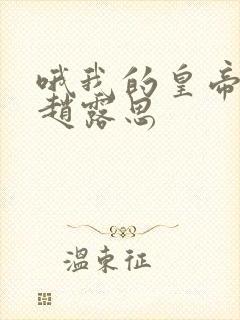 哦我的皇帝
趙露思
溫束征